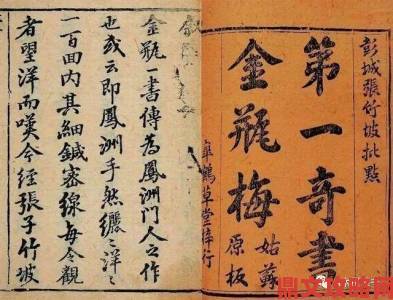 彭城張竹坡批點
第一奇書
金瓶梅
姑蘇
原板
皐鶴草堂梓行
金瓶一書傳為鳳洲門人之作
也或云即鳳洲手然纚〻洋〻
一百囬内其細鍼密線每令觀
者望洋而嘆今經張子竹坡